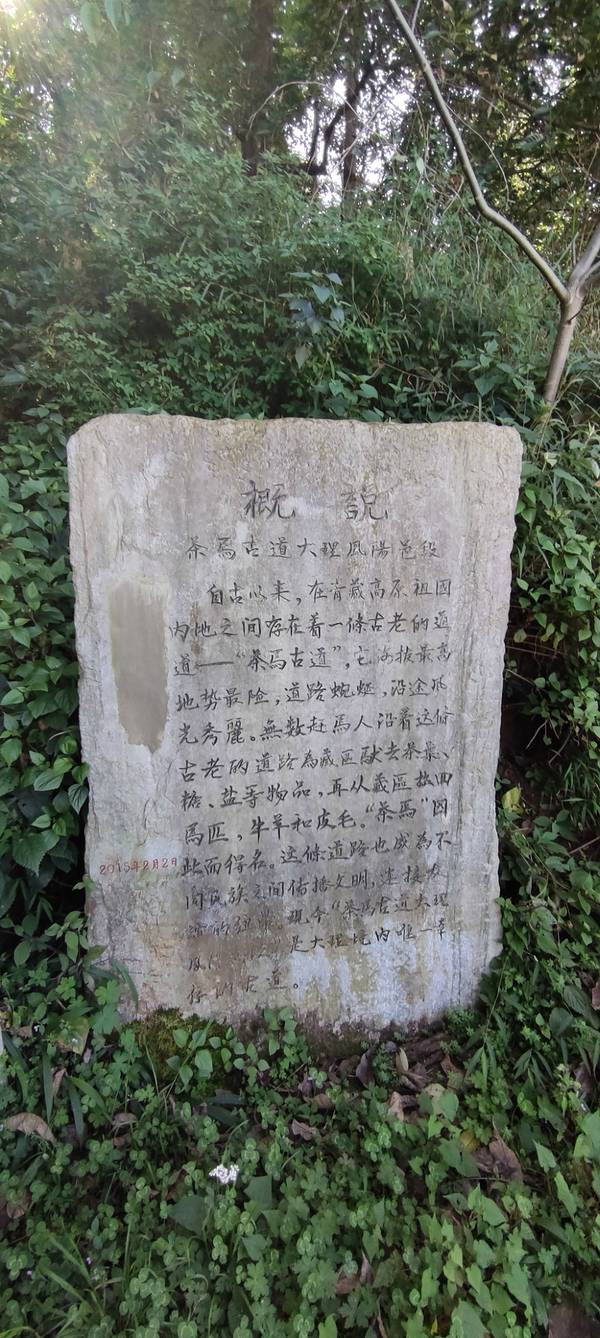 概 說
茶馬古道大理凤陽邑段
自古以来，在青藏高原祖国
内地之间存在着一條古老的通
道——“茶馬古道”，它海拔最高
地势最险，道路蜿蜒，沿途风
光秀麗。無数赶馬人沿着这條
古老的道路為藏區馱去茶葉、
糖、盐等物品，再从藏區换回
馬匹，牛羊和皮毛。“茶馬”因
此而得名。这條道路也成為不
同民族之间传播文明，連接友
的纽带。现今“茶馬古道大理
凤 是大理境内唯一幸
存的古道。
2015年2月2日